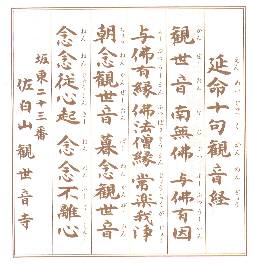 延命十句観音経
観世音 南無佛 与佛有因
与佛有縁 佛法僧縁 常楽我浄
朝念観世音 暮念観世音
念念従心起 念念不離心
坂東二十三番
佐白山観世音寺